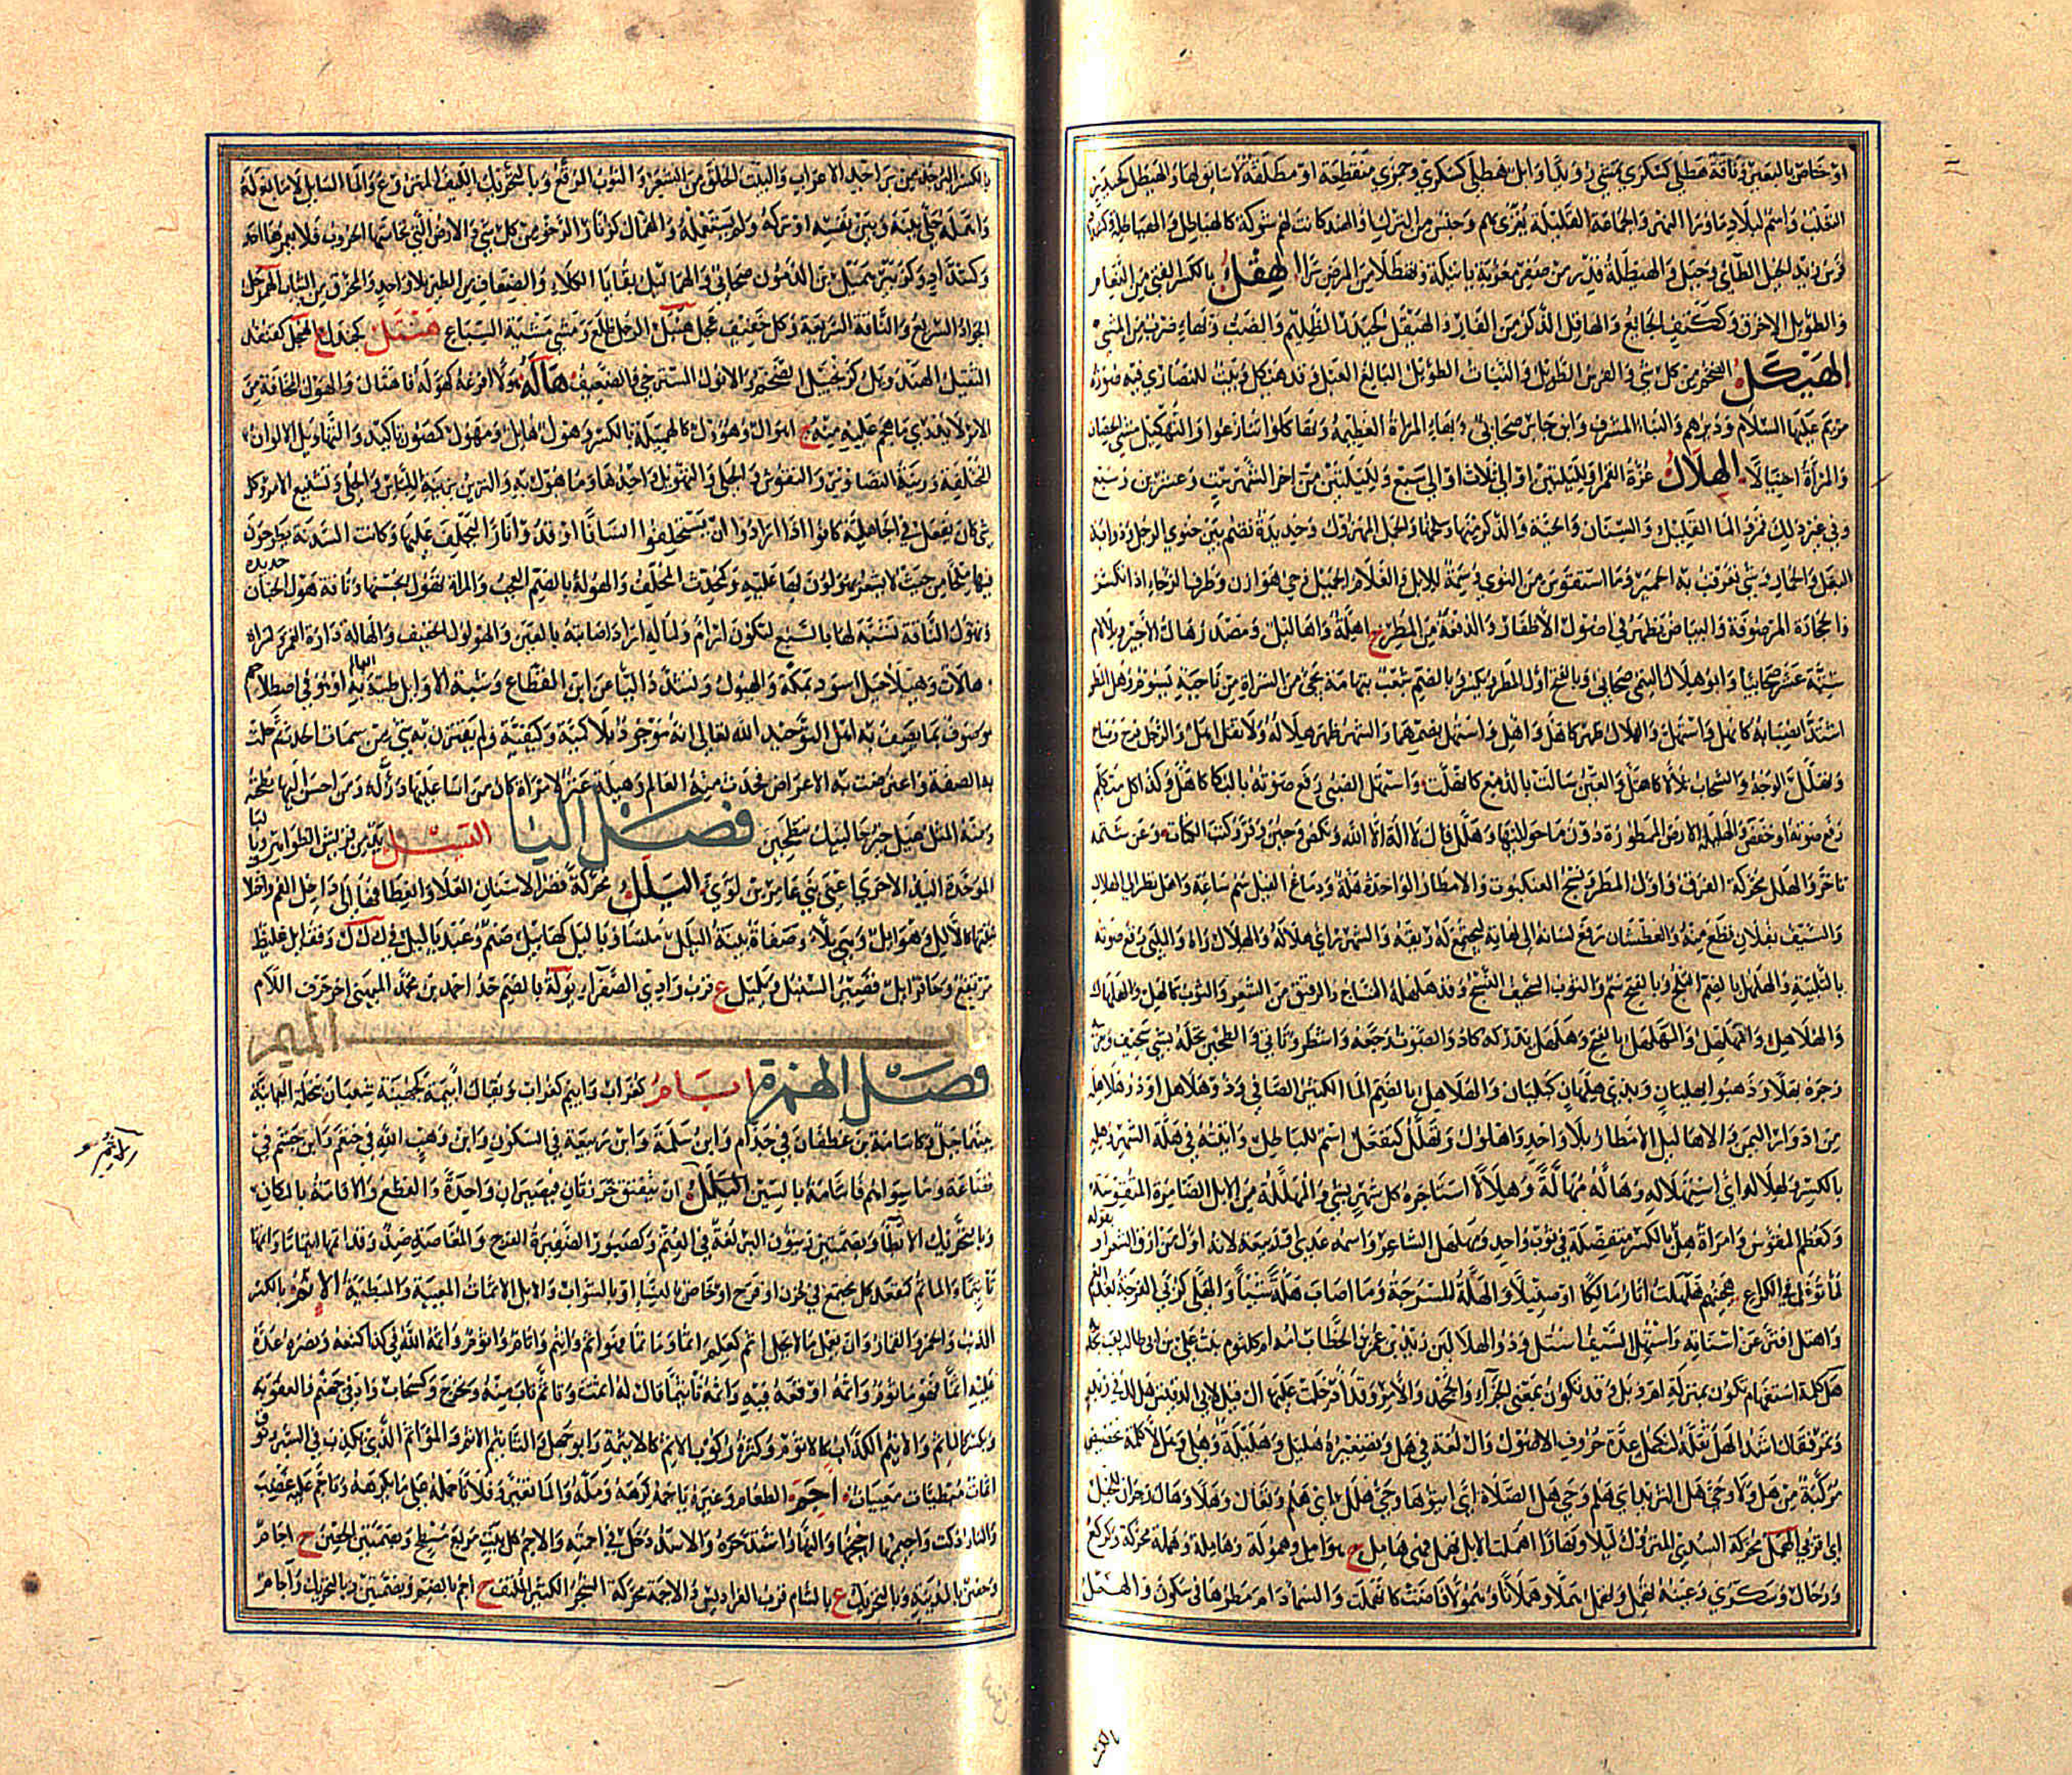 او خاص بالبعير وناقة هطلى كسكرى تمشى رويدا وابل هطلى كسكرى وجمزى منقطعة او مطلقة لا سائق لها والهيطل كحيدر
الثعلب واسم لبلاد ما وراء النهر والجماعة القليلة يغزى بهم وجنس من الترك والهند كانت لهم شوكة كالهياطل والهياطلة
زيد الخيل الطائى فى جبل والهيطلة قدر من صفر معربة باتيلة وتهطلا من المرض برا الهقل بالكسر الفتى من النعام
والطويل الاخرق وككتف الجائع والهاقل الذكر من الفار والهيقل كحيدر الظليم والضب وبهاء ضرب من المشى
الهيكل الضخم من كل شى والفرس الطويل والنبات الطويل البالغ العبل وقد هيكل وبيت للنصارى فيه صورة
مريم عليها السلام وديرهم والبناء المشرف وابن جابر صحابى وبهاء المراة العظيمة وتهاكلوا تنازعوا والتهكيل مشى الحصان
والمراة اختيالا الهلال غرة القمر او لليلتين او الى ثلاث او الى سبع ولليلتين من اخر الشهر ست وعشرين وسبع
وفى غير ذلك قمر والماء القليل والسنان والحية والذكر منها وسلخها والجمل المهزول وحديدة تضم بين حنوى الرحل وذوابة
النعل والغبار وشى يعرقب به الحمير وما استقوس من النوى وسمة للابل والغلام الجميل وحى من هوازن وطرف الرحى اذا انكسر
والحجارة المرصوفة والبياض يظهر فى اصول الاظفار والدفعة من المطر ج اهلة واهاليل ومصدر هال الاجير وبلا لام
ستة عشر صحابيا وابو هلال التيمى صحابى وبالفتح اول المطر ويكسر وبالضم شعب بتهامة يجىء من السراة من ناحية يسوم وهل المطر
اشتد انصبابه كانهل واستهل والهلال ظهر كاهل واهل واستهل بضمهما والشهر ظهر هلاله ولا تقل اهل والرجل فرح وصاح
وتهلل الوجه والسحاب تلالا كاهتل والعين سالت بالدمع كانهلت واستهل الصبى رفع صوته بالبكاء كاهل وكذا كل متكلم
رفع صوته او خفض والهليلة الارض الممطورة دون ما حواليها وهلل قال لا اله الا الله ونكص وجبن وفر وكتب الكتاب وعن شتمه
تاخر والهلل محركة الفرق واول المطر ونسج العنكبوت والامطار الواحدة هلة ودماغ الفيل سم ساعة واهل نظر الى الهلال
والسيف بفلان قطع منه والعطشان رفع لسانه الى لهاته ليجتمع له ريقه والشهر راى هلاله والهلال راه والملبى رفع صوته
بالتلبية والهلهل بالضم الثلج وبالفتح سم والثوب السخيف النسج وقد هلهله النساج والرقيق من الشعر والثوب كالهل والهلهال
والهلاهل والمهلهل وهلهل يدركه كاد والصوت رجعه وانتظر وتانى والطحين نخله بشى سخيف وعن
وجره بقلا وذهبوا بهليان وبذى هليان كبليان والهلاهل بالضم الماء الكثير الصافى وذو هلاهل او ذو هلاهلة
من اذواء اليمن والاهاليل الامطار بلا واحد او اهلول وتهلل كتفعل اسم للباطل واتيته فى هلة الشهر وهله
بالكسر وهلاله اى استهلاله وهاله مهالة وهلالا استاجره كل شهر بشى والمهللة من الابل الضامرة المتقوسة
وكمعظم المقوس وامراة هل بالكسر متفضلة فى ثوب واحد ومهلهل الشاعر واسمه عدى او ربيعة لانه اول من ارق الشعر او بقوله
لما توغل فى الكراع هجينهم هلهلت اثار مالكا او صنبلا والهلة المسرجة وما اصاب هلة شيئا والهلى كربى الفرجة بعد الغم
واهتل افتر عن اسنانه واستهل السيف استل وذو الهلالين زيد بن عمر بن الخطاب امه ام كلثوم بنت على بن ابى طالب لقب بجديه
هل كلمة استفهام تكون بمنزلة ام وبل وقد تكون بمعنى الجزاء والجحد والامر وقد ادخلت عليها ال قيل لابى الدقيش هل لك فى زبد
وتمر فقال اشد الهل ثقله ليكمل عدد حروف الاصول وال لغة فى هل وتصغيره هليل وهليلة وهلى وهلا كلمة تحضيض
مركبة من هل ولا وحى هل الثريد اى هلم وحى هل الصلاة اى ايتوها وحى هلا اى هلم وتعال وهلا وهال زجران للخيل
اى قربى الهمل محركة السدى المتروك ليلا ونهارا هملت الابل تهمل فهى هامل ج هوامل وهمولة وهاملة وهمل محركة وكركع
ورخال وسكرى وعينه تهمل وتهمل هملا وهملانا وهمولا فاضت كانهملت والسماء دام مطرها فى سكون والهمل
بالكسر البرجد من براجد الاعراب والبيت الخلق من الشعر والثوب المرقع وبالتحريك الليف المنزوع والماء السائل لا مانع له
واهمله خلى بينه وبين نفسه او تركه ولم يستعمله والهمال كزنار الرخو من كل شى والارض التى تحامتها الحروب فلا يعمرها احد
وكشداد وكزبير هميل بن الدمون صحابى والهماليل بقايا الكلاء والضعاف من الطير بلا واحد والمخرق من الثياب الهمرجل
الجواد السريع والناقة السريعة وكل خفيف عجل هنبل الرجل ظلع ومشى مشية السباع هنتل كجندل ع
الثقيل هاله هولا افزعه كهوله فاهتال والهول المخافة من
الامر لا يدرى ما هجم عليه منه ج اهوال وهؤول كالهيلة بالكسر وهول هائل ومهول كمصون تاكيد والتهاويل الالوان
المختلفة وزينة التصاوير والنقوش والحلى والتهويل واحدها وما هول به والتزين بزينة اللباس والحلى وتشنيع الامر وكل
شى كان يفعل فى الجاهلية كانوا اذا ارادوا ان يستحلفوا انسانا اوقدوا نارا ليحلف عليها وكانت السدنة يطرحون
فيها ملحا من حيث لا يشعر يهولون بها عليه وكمحدث المحلف والهولة بالضم العجب والمراة تهول بحسنها وناقة هول الجنان حديدة
وتهول للناقة تشبه لها بالسبع لتكون ارام ولماله اراد اصابته بالعين والهولول الخفيف والهالة دارة القمر
هالات وهيلا جبل اسود بمكة والهيول وتشدد الياء عن ابن القطاع وشبه الاوائل طينة العالم به او هو فى اصطلاحهم
موصوف بما يصف به اهل التوحيد الله تعالى انه موجود بلا كمية وكيفية ولم يقترن به شى من سمات الحدث ثم حلت
به الصفة واعترضت به الاعراض فحدث منه العالم وهيلة عنز لامراة كان من اساء عليها درت له ومن احسن اليها نطحته
ومنه المثل هيل خير حالبيك تنطحين فصل الياء اليسل يد من قريش الظواهر وبالباء
الموحدة اليد الاخرى اعنى بنى عامر بن لؤى اليلل محركة قصر الاسنان العليا وانعطافها الى داخل الفم واختلاف
نبتتها كالالل وهو ايل وهى يلاء وصفاة بينة اليلل ملساء ويا ليل كهابيل صنم وعبد يا ليل فى ك ل ل وقف ايل غليظ
مرتفع وحافر ايل قصير السنبك ويليل ع قرب وادى الصفراء يولة بالضم جد احمد بن محمد الميهنى اخر حرف اللام
باب الميم
فصل الهمزة ابام كغراب وابيم كغراب ويقال ابيمة كجهينة شعبان بنخلة اليمانية
بينهما جبل وكاسامة بن غطفان فى جذام وابن سلمة وابن ربيعة فى السكون وابن وهب الله فى خثعم وابن جشم فى
قضاعة وما سواهم فاسامة بالسين الاتم ان تنفتق خرزتان فيصيران واحدة والقطع والاقامة بالمكان
وبالتحريك الابطاء وبضمتين زيتون البر لغة فى العتم وكصبور الصغيرة الفرج والمفضاة ضد وقد اتمها ايتاما واتمها
تاتيما والماتم كمقعد كل مجتمع فى حزن او فرح او خاص بالنساء او بالشواب والابل الاتمات المعيية والمبطئة الاثم بالكسر
الذنب والخمر والقمار وان يعمل ما لا يحل اثم كعلم اثما وماثما فهو اثم واثيم واثام واثوم واثمه الله فى كذا كمنعه ونصره عده
عليه اثما فهو ماثوم واثمه اوقعه فيه واثمه تاثيما قال له اثمت وتاثم تاب منه وتحرج وكسحاب واد فى جهنم والعقوبة
ويكسر كالماثم والاثيم الكذاب كالاثوم وكثرة ركوب الاثم كالاثيمة وابو جهل والتاثيم الاثم والمؤاثم الذى يكذب فى السير ونوق
اثمات مبطئات معييات اجم الطعام وغيره ياجمه كرهه ومله والماء تغير وفلانا حمله على ما يكرهه وتاجم عليه غضب
والنار ذكت واجيمها اجيجها والنهار اشتد حره والاسد دخل فى اجمته والاجم كل بيت مربع مسطح وبضمتين الحصن ج اجام
وحصن بالمدينة وبالتحريك ع بالشام قرب الفراديس والاجمة محركة الشجر الكثير الملتف ج اجم بالضم وبضمتين وبالتحريك واجام
الاثم